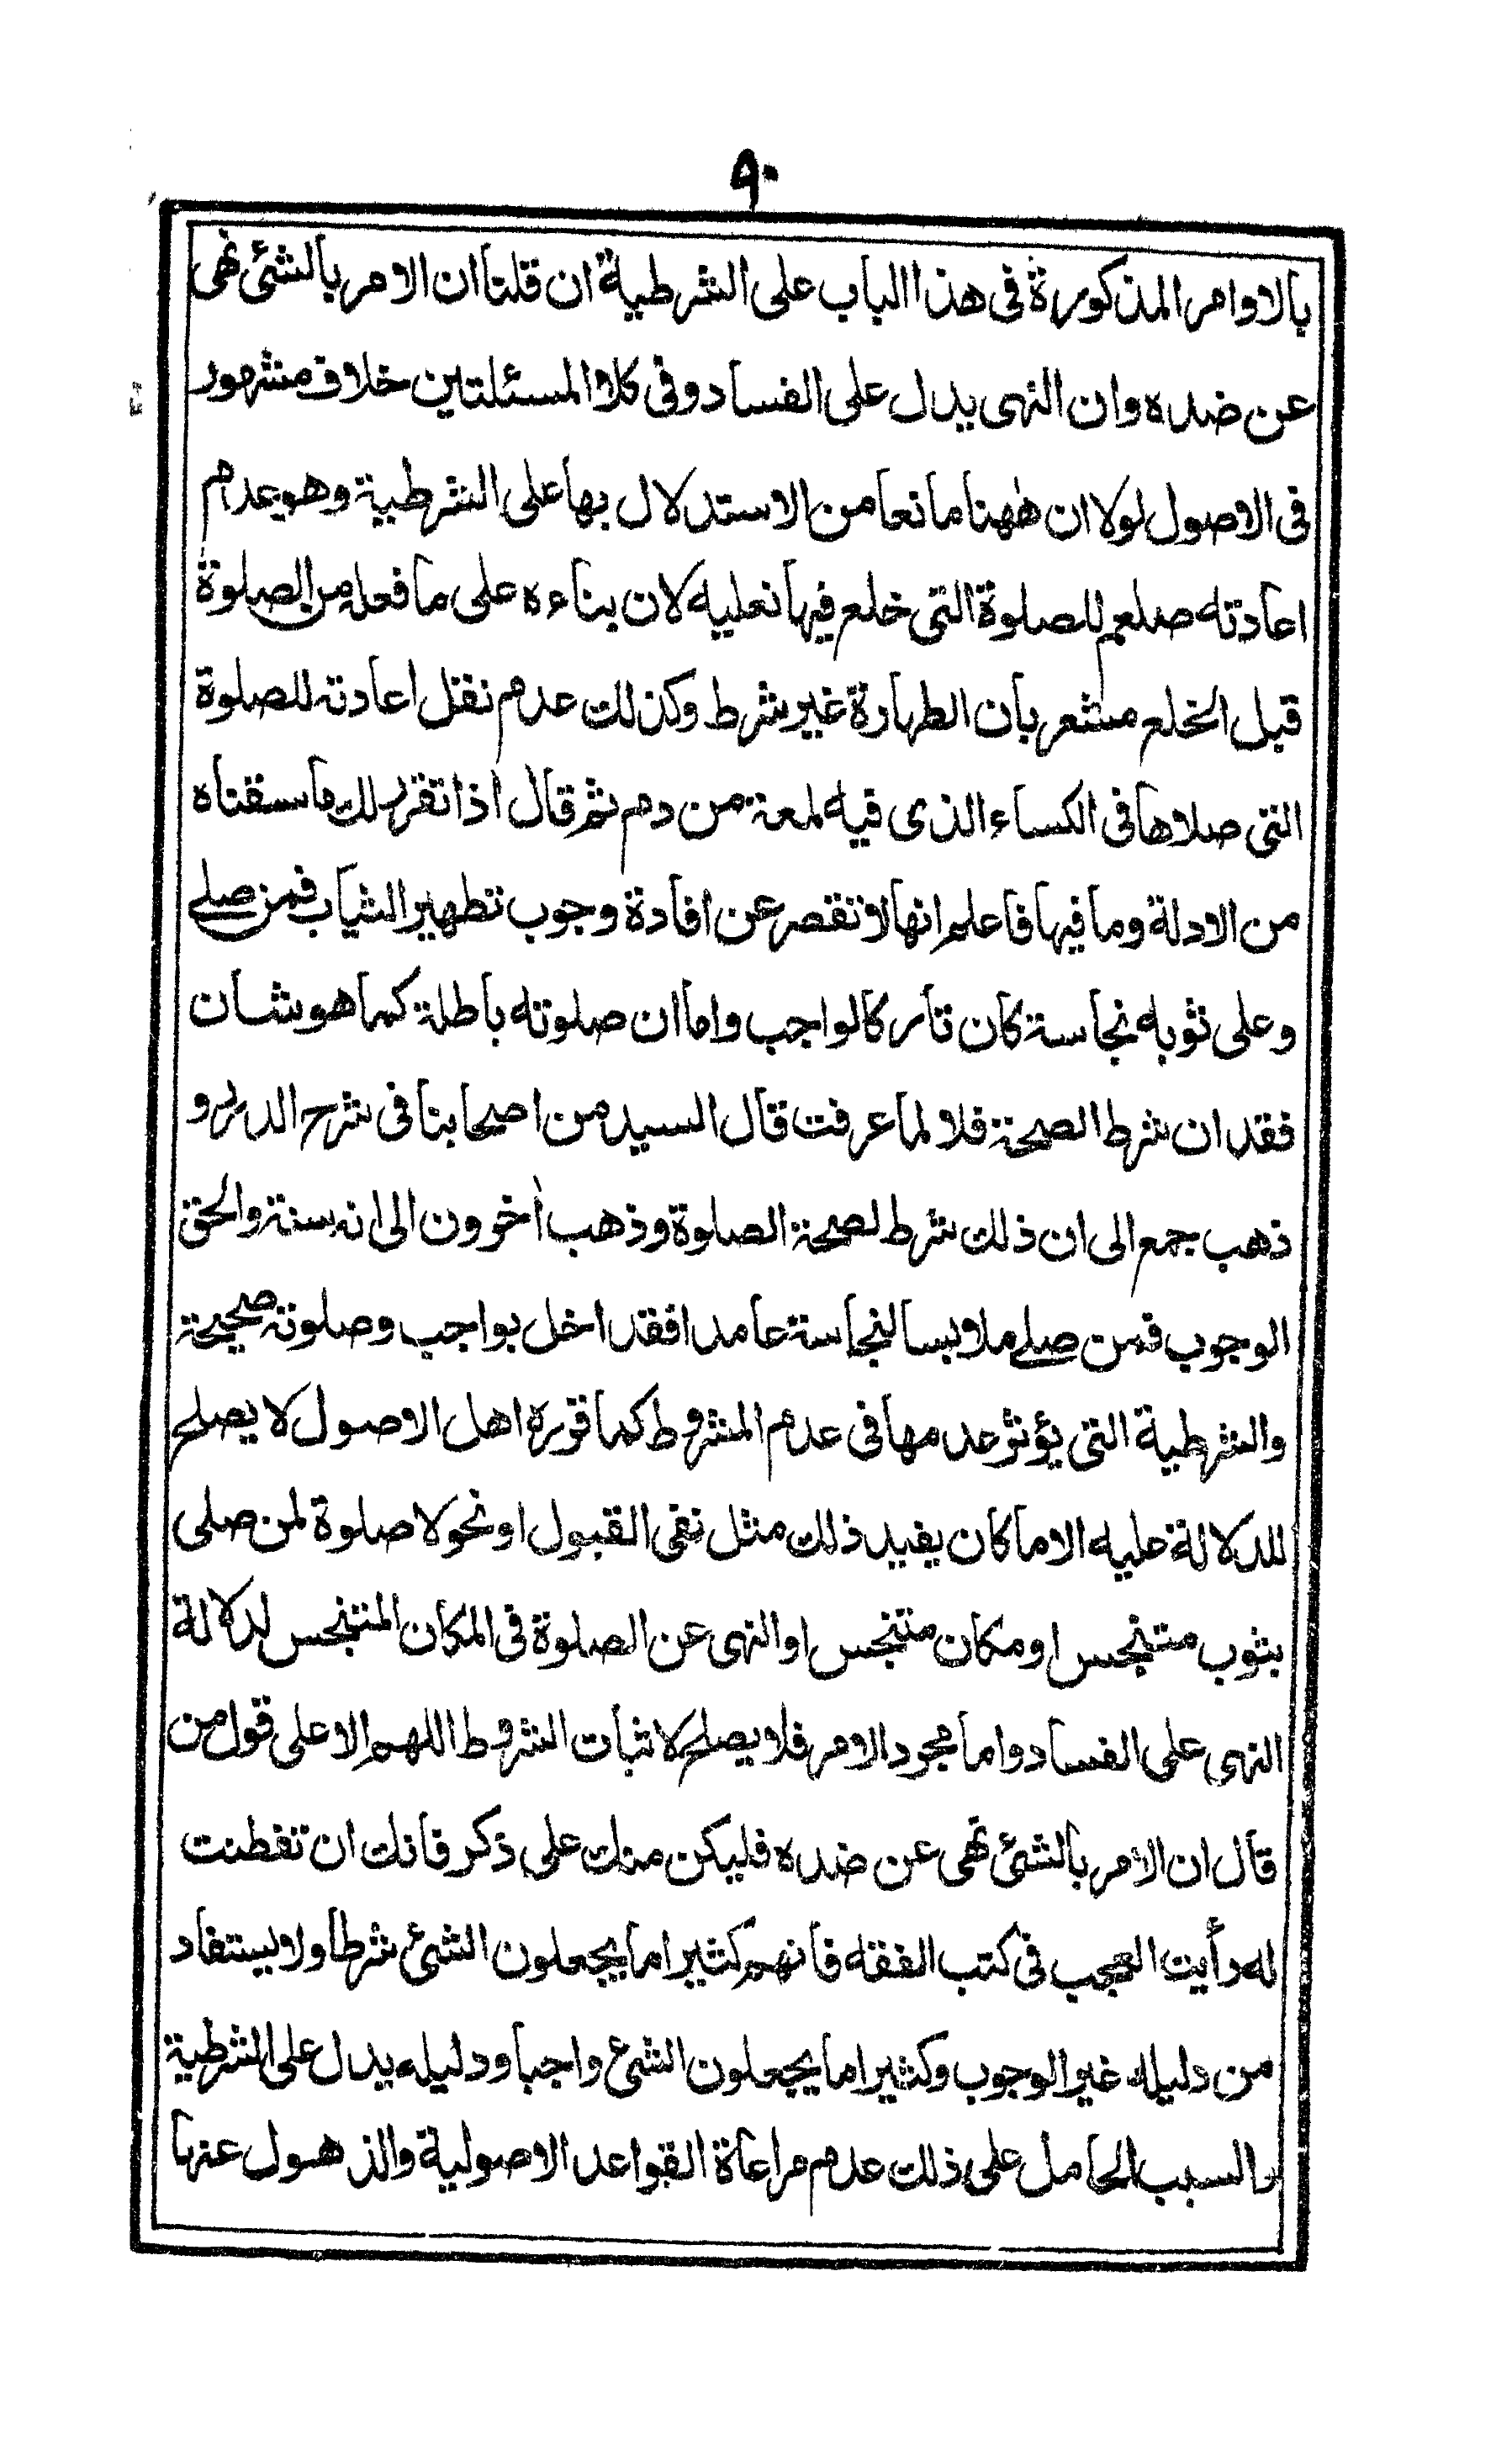 ٩٠
بالاوامر المذكورة فى هذا الباب على الشرطية ان قلنا ان الامر بالشئ نهى
عن ضده وان النهى يدل على الفساد وفى كلا المسئلتين خلاف مشهور
فى الاصول لولا ان ههنا مانعا من الاستدلال بها على الشرطية وهو عدم
اعادته صلعم للصلوة التى خلع فيها نعليه لان بناءه على ما فعله من الصلوة
قبل الخلع مشعر بان الطهارة غير شرط وكذلك عدم نقل اعادته للصلوة
التى صلاها فى الكساء الذى فيه لمعة من دم ثم قال اذا تقرر لك ما سقناه
من الادلة وما فيها فاعلم انها لا تقصر عن افادة وجوب تطهير الثياب فمن صلے
وعلى ثوبه نجاسة كان تاركا لواجب واما ان صلوته باطلة كما هو شان
فقدان شرط الصحة فلا لما عرفت قال السيد من اصحابنا فى شرح الدرر و
ذهب جمع الى ان ذلك شرط لصحة الصلوة وذهب أخرون الى انه سنة والحق
الوجوب فمن صلے ملابسا لنجاسة عامدا فقد اخل بواجب وصلوته صحيحة
والشرطية التى يؤثر عدمها فى عدم المشروط كما قرره اهل الاصول لا يصلح
للدلالة عليه الا ما كان يفيد ذلك مثل نفى القبول او نحو لا صلوة لمن صلى
بثوب متنجس او مكان متنجس او النهى عن الصلوة فى المكان المتنجس لدلالة
النهى على الفساد واما مجرد الامر فلا يصلح لاثبات الشروط اللهم الا على قول من
قال ان الامر بالشئ نهى عن ضده فليكن منك على ذكر فانك ان تفطنت
له رأيت العجب فى كتب الفقه فانهم كثيرا ما يجعلون الشئ شرطا ولا يستفاد
من دليله غير الوجوب وكثيرا ما يجعلون الشئ واجبا ودليله يدل على الشرطية
والسبب الحامل على ذلك عدم مراعاة القواعد الاصولية والذهول عنها